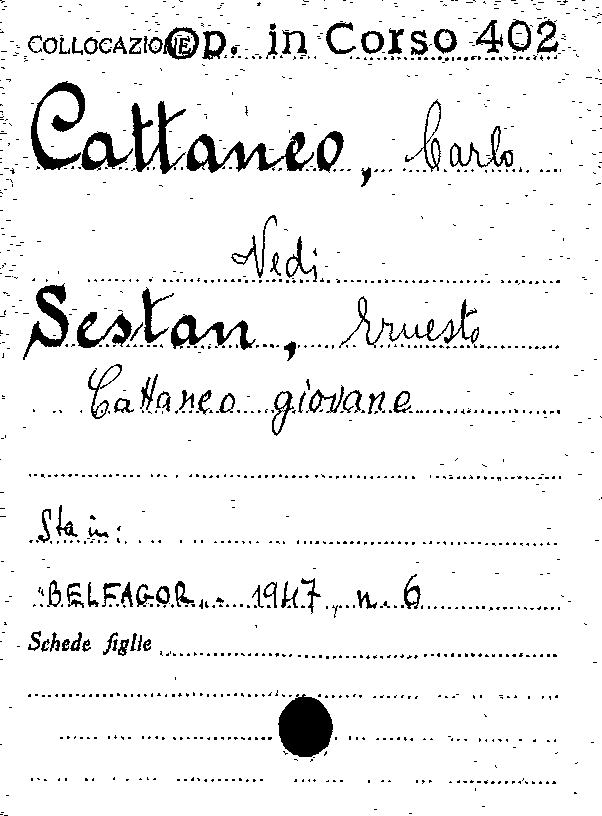 COLLOCAZIONE Op. in Corso 402
Cattaneo, Carlo
Vedi
Sestan, Ernesto
Cattaneo giovane
Sta in:
"BELFAGOR„ - 1947, n. 6
Schede figlie